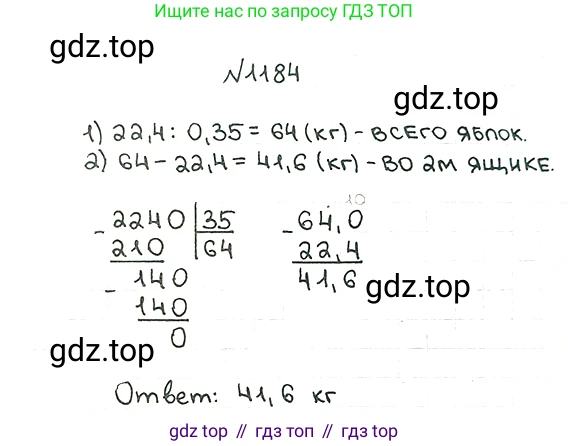 Ищите нас по запросу ГДЗ ТОП
gdz.top
№1184
gdz.top
1) 22,4 : 0,35 = 64 (кг) - ВСЕГО ЯБЛОК.
2) 64 - 22,4 = 41,6 (кг) - ВО 2М ЯЩИКЕ.
10
- 2240 | 35 - 64,0
210 | 64 22,4
- 140 41,6
gdz.top
140
0
gdz.top
Ответ: 41,6 кг
gdz.top // гдз топ // gdz.top